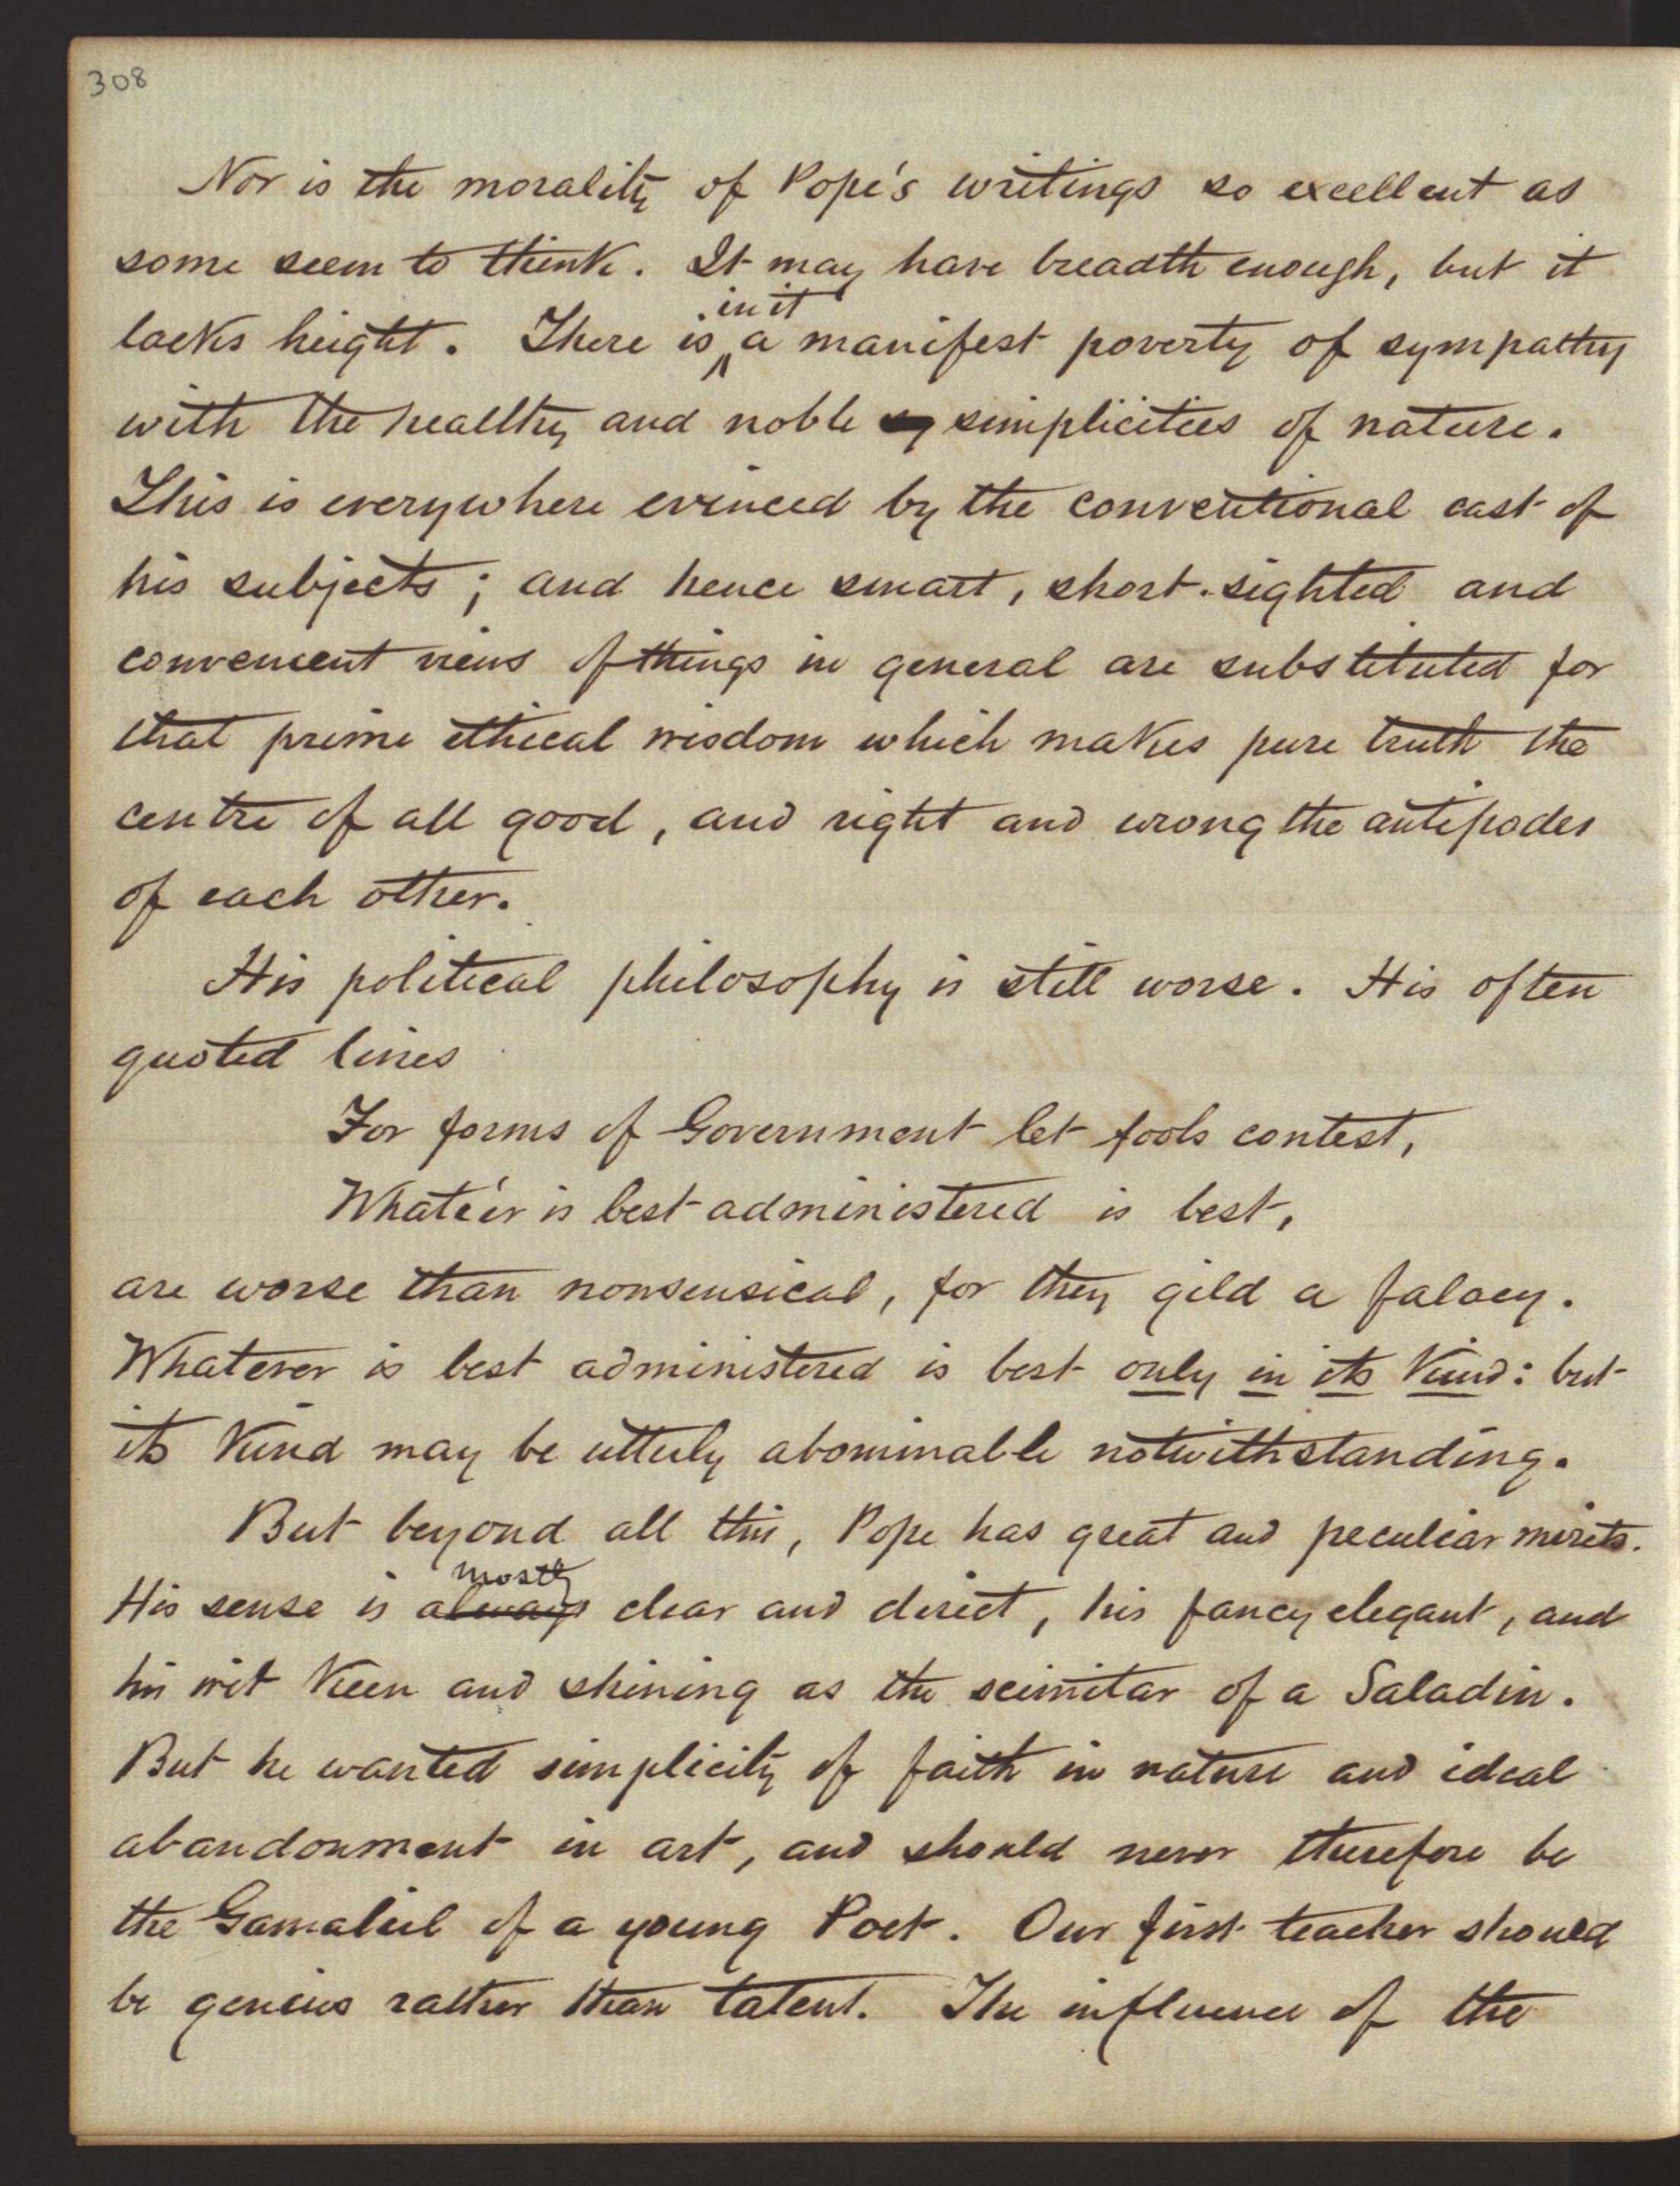 308
Nor is the morality of Pope's writings so excellent as
some seem to think. It may have breadth enough, but it
lacks height. There is in it a manifest poverty of sympathy
with the healthy and noble sy simplicities of nature.
This is everywhere evinced by the conventional cast of
his subjects; and hence smart, short-sighted and
convenient views of things in general are substituted for
that prime ethical wisdom which makes pure truth the
centre of all good, and right and wrong the antipodes
of each other.
His political philosophy is still worse. His often
quoted lines
For forms of Government let fools contest,
Whate'er is best administered is best,
are worse than nonsensical, for they gild a falacy.
Whatever is best administered is best only in its kind: but
its kind may be utterly abominable notwithstanding.
But beyond all this, Pope has great and peculiar merits.
His sense is always mostly clear and direct, his fancy elegant, and
his wit keen and shining as the scimitar of a Saladin.
But he wanted simplicity of faith in nature and ideal
abandonment in art, and should never therefore be
the Gamaliel of a young Poet. Our first teacher should
be genius rather than talent. The influence of the